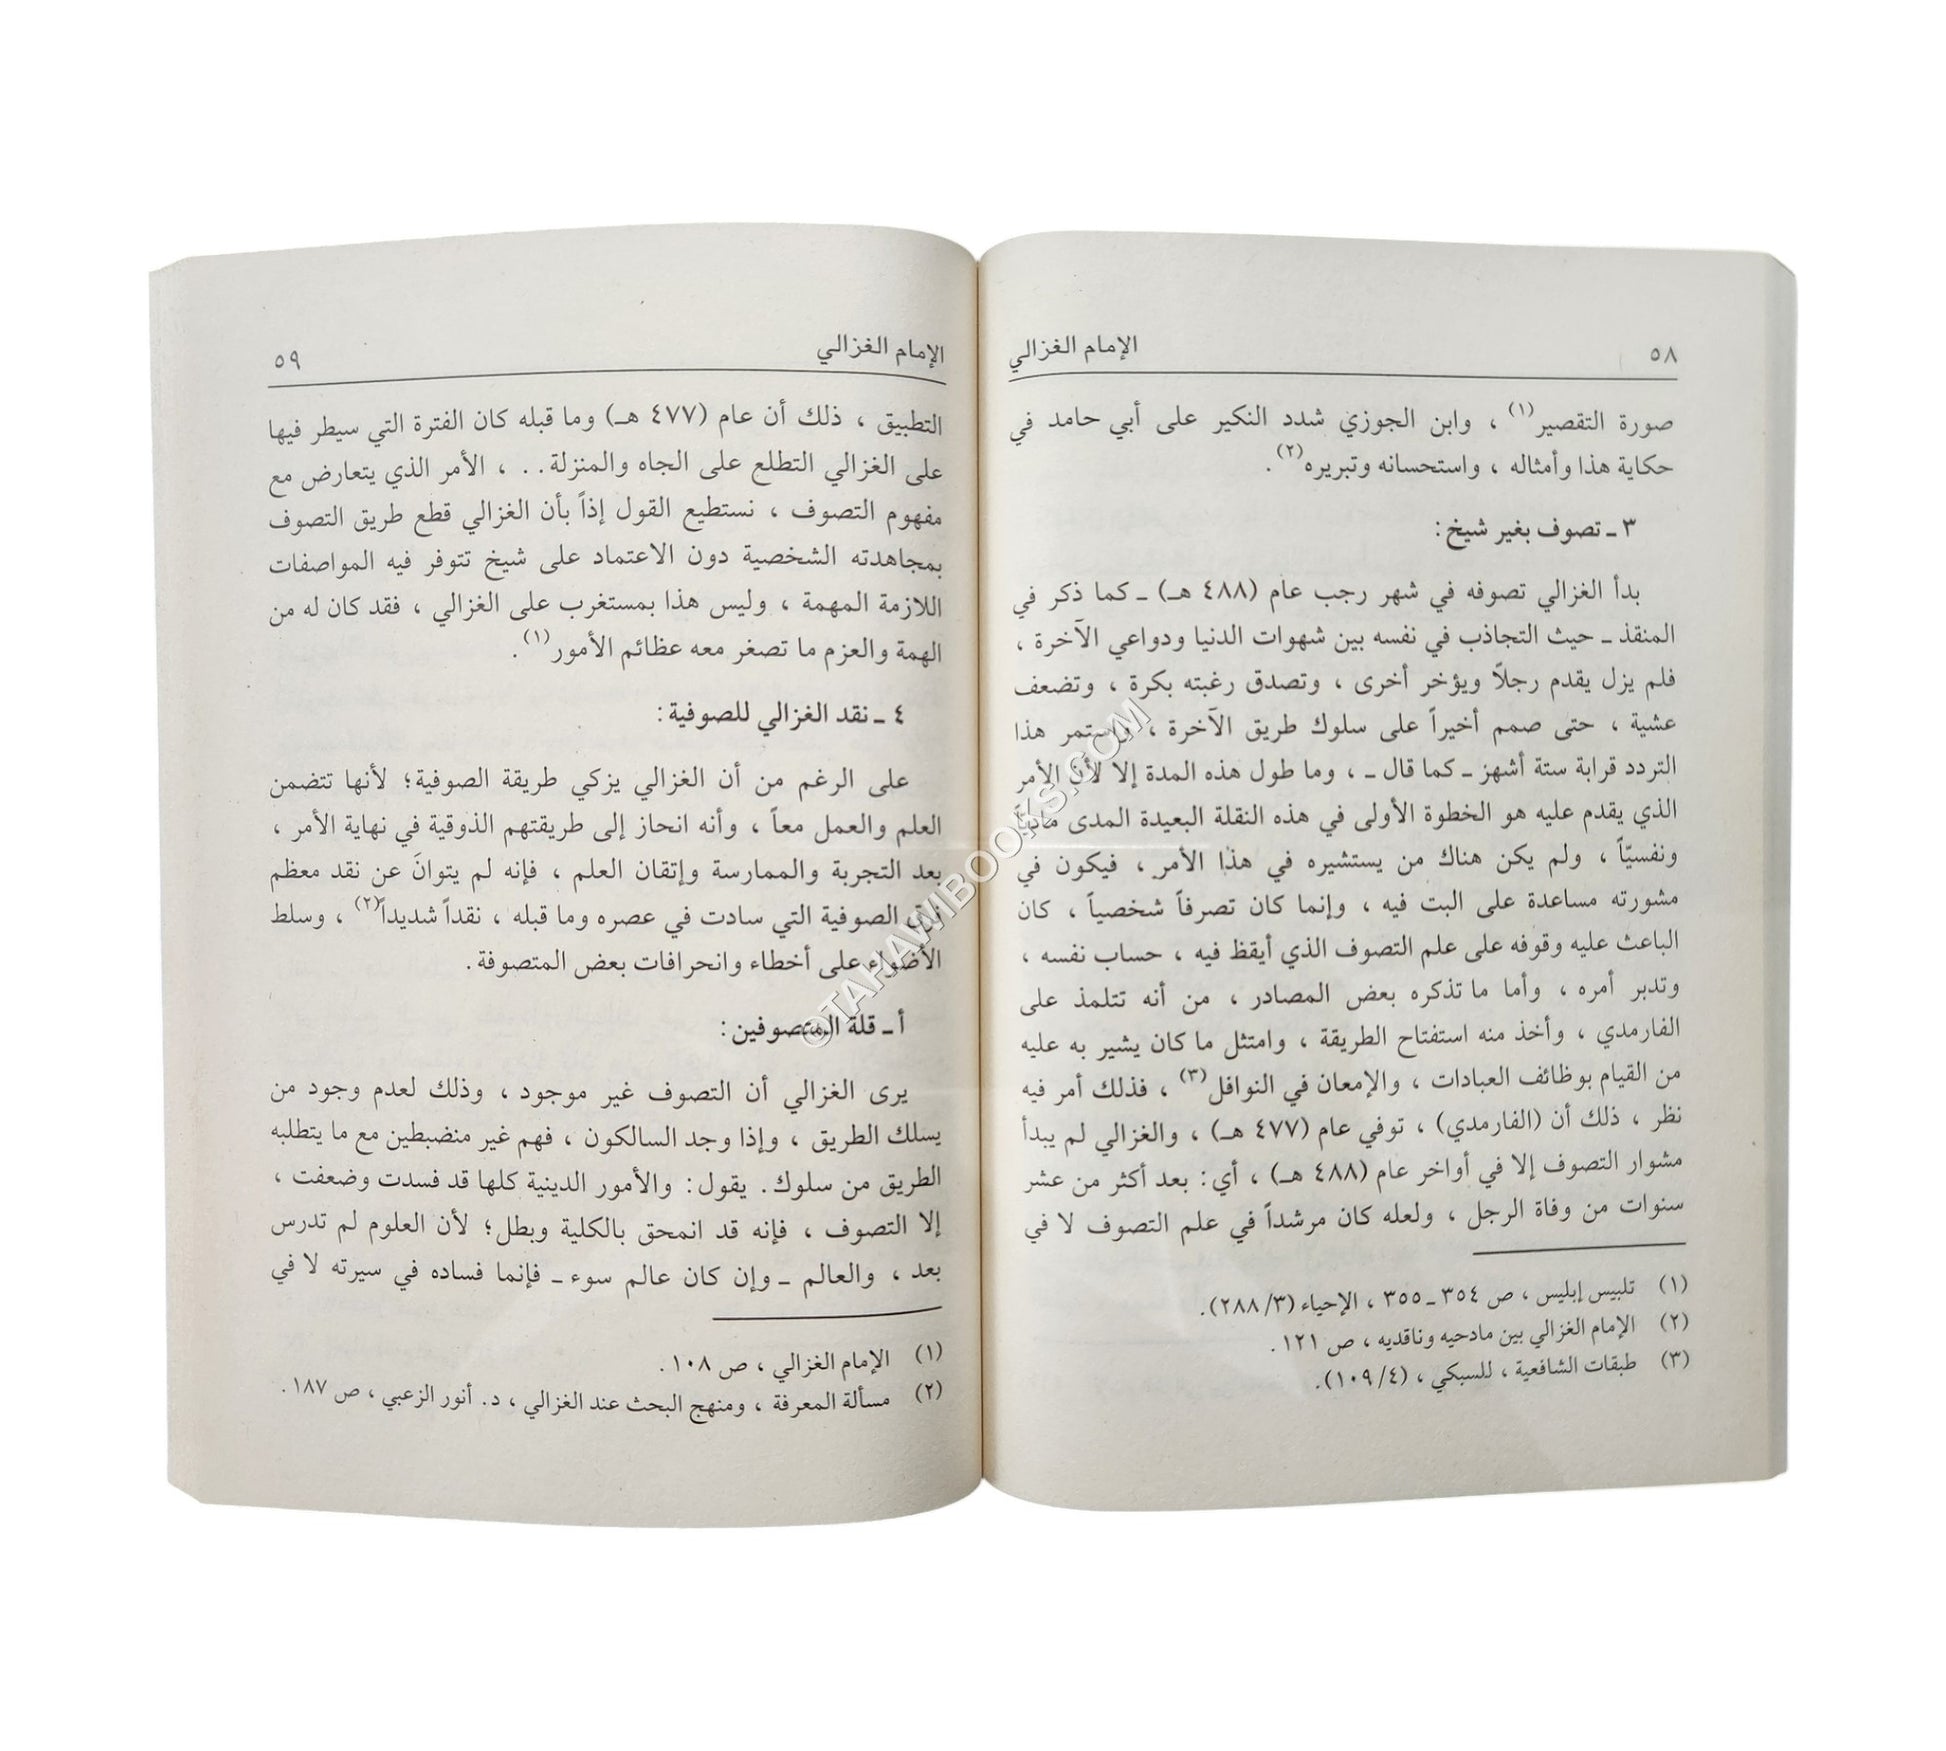 ٥٨
الإمام الغزالي
صورة التقصير(١) ، وابن الجوزي شدد النكير على أبي حامد في
حكاية هذا وأمثاله ، واستحسانه وتبريره(٢).
٣ ـ تصوف بغير شيخ:
بدأ الغزالي تصوفه في شهر رجب عام (٤٨٨ هـ) ـ كما ذكر في
المنقذ ـ حيث التجاذب في نفسه بين شهوات الدنيا ودواعي الآخرة ،
فلم يزل يقدم رجلاً ويؤخر أخرى ، وتصدق رغبته بكرة ، وتضعف
عشية ، حتى صمم أخيراً على سلوك طريق الآخرة ، واستمر هذا
التردد قرابة ستة أشهر ـ كما قال ـ ، وما طول هذه المدة إلا لأن الأمر
الذي يقدم عليه هو الخطوة الأولى في هذه النقلة البعيدة المدى مادياً
ونفسيّاً ، ولم يكن هناك من يستشيره في هذا الأمر ، فيكون في
مشورته مساعدة على البت فيه ، وإنما كان تصرفاً شخصياً ، كان
الباعث عليه وقوفه على علم التصوف الذي أيقظ فيه ، حساب نفسه ،
وتدبر أمره ، وأما ما تذكره بعض المصادر ، من أنه تتلمذ على
الفارمدي ، وأخذ منه استفتاح الطريقة ، وامتثل ما كان يشير به عليه
من القيام بوظائف العبادات ، والإمعان في النوافل(٣) ، فذلك أمر فيه
نظر ، ذلك أن (الفارمدي) ، توفي عام (٤٧٧ هـ) ، والغزالي لم يبدأ
مشوار التصوف إلا في أواخر عام (٤٨٨ هـ) ، أي: بعد أكثر من عشر
سنوات من وفاة الرجل ، ولعله كان مرشداً في علم التصوف لا في
(١) تلبيس إبليس ، ص ٣٥٤ ـ ٣٥٥ ، الإحياء (٣/ ٢٨٨).
(٢) الإمام الغزالي بين مادحيه وناقديه ، ص ١٢١.
(٣) طبقات الشافعية ، للسبكي ، (٤/ ١٠٩).
الإمام الغزالي
٥٩
التطبيق ، ذلك أن عام (٤٧٧ هـ) وما قبله كان الفترة التي سيطر فيها
على الغزالي التطلع على الجاه والمنزلة. . ، الأمر الذي يتعارض مع
مفهوم التصوف ، نستطيع القول إذاً بأن الغزالي قطع طريق التصوف
بمجاهدته الشخصية دون الاعتماد على شيخ تتوفر فيه المواصفات
اللازمة المهمة ، وليس هذا بمستغرب على الغزالي ، فقد كان له من
الهمة والعزم ما تصغر معه عظائم الأمور(١).
٤ ـ نقد الغزالي للصوفية:
على الرغم من أن الغزالي يزكي طريقة الصوفية؛ لأنها تتضمن
العلم والعمل معاً ، وأنه انحاز إلى طريقتهم الذوقية في نهاية الأمر ،
بعد التجربة والممارسة وإتقان العلم ، فإنه لم يتوانَ عن نقد معظم
فرق الصوفية التي سادت في عصره وما قبله ، نقداً شديداً(٢) ، وسلط
الأضواء على أخطاء وانحرافات بعض المتصوفة.
أ ـ قلة المتصوفين:
يرى الغزالي أن التصوف غير موجود ، وذلك لعدم وجود من
يسلك الطريق ، وإذا وجد السالكون ، فهم غير منضبطين مع ما يتطلبه
الطريق من سلوك. يقول: والأمور الدينية كلها قد فسدت وضعفت ،
إلا التصوف ، فإنه قد انمحق بالكلية وبطل؛ لأن العلوم لم تدرس
بعد ، والعالم ـ وإن كان عالم سوء ـ فإنما فساده في سيرته لا في
(١) الإمام الغزالي ، ص ١٠٨.
(٢) مسألة المعرفة ، ومنهج البحث عند الغزالي ، د. أنور الزعبي ، ص ١٨٧.
©TAHAWIBOOKS.COM